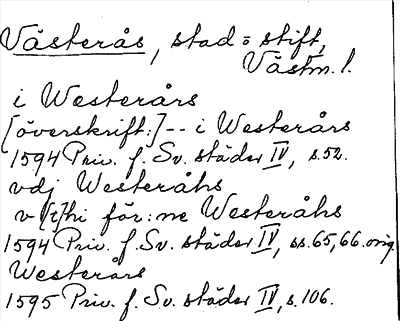 Västerås, stad o. stift,
Västm. l.
i Westerårs
[överskrift:] -- i Westerårs
1594 Priv. f. Sv. städer IV, s. 52.
vdj Westeråhs
v [t]hi för:ne Westeråhs
1594 Priv. f. Sv. städer IV, ss. 65, 66. orig.
Westerårs
1595 Priv. f. Sv. städer IV, s. 106.